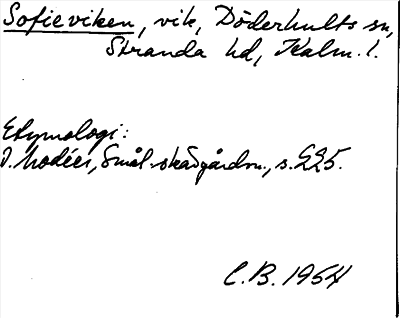 Sofieviken, vik, Döderhults sn,
Stranda hd, Kalm. l.
Etymologi:
I. Modéer, Smål. skärgårdsn., s. 225.
C.B. 1954